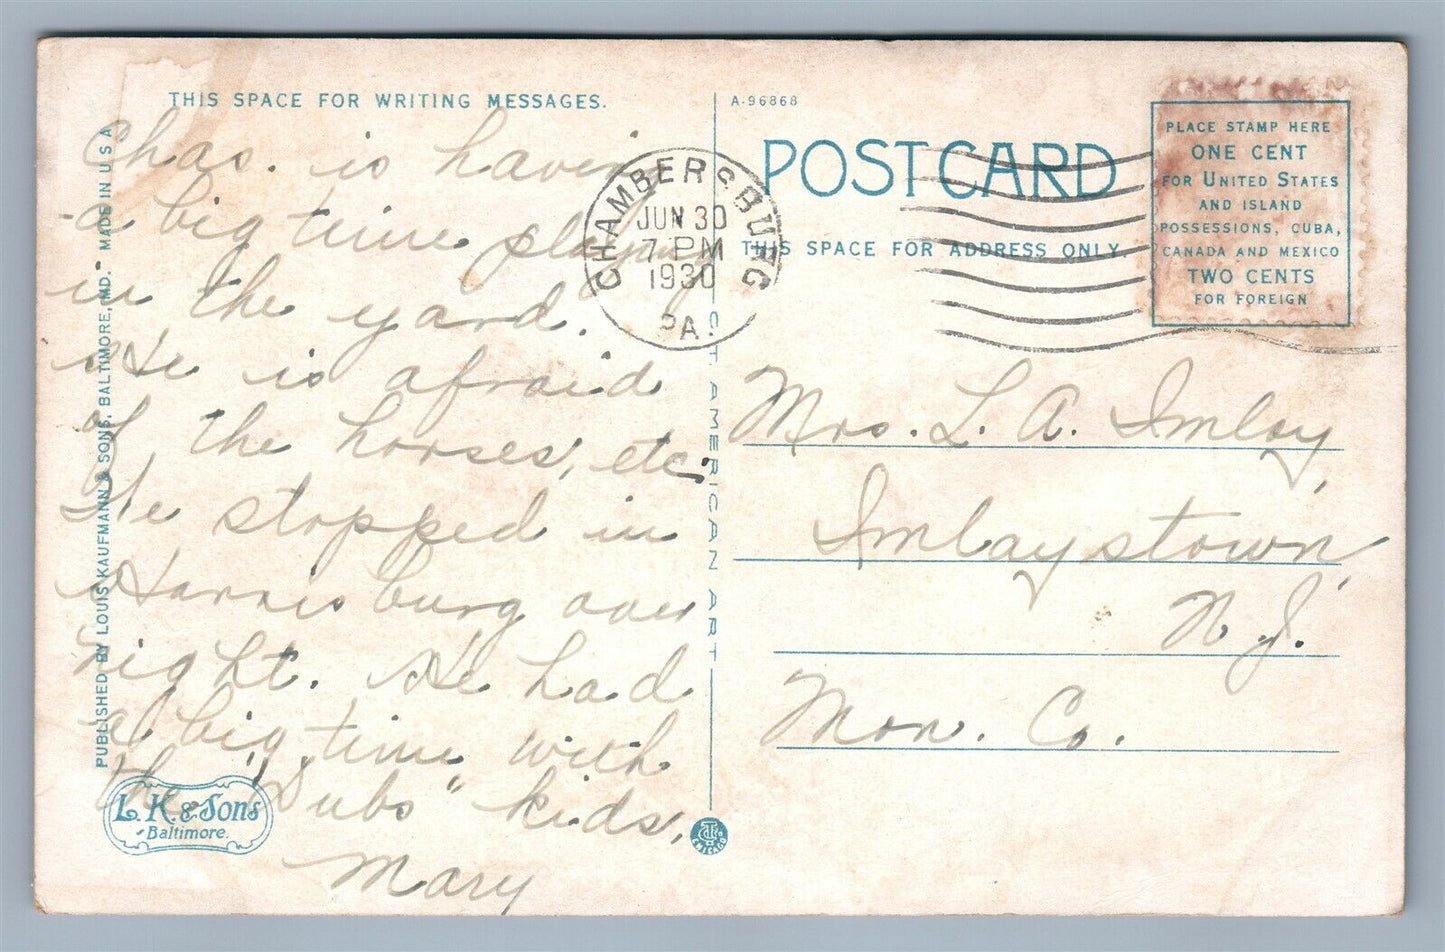 THIS SPACE FOR WRITING MESSAGES.
Chas. is having
a big time playing
in the yard.
He is afraid
of the horses, etc.
He stopped in
Harrisburg over
night. He had
a big time with
the "Dubs" kids.
Mary
PUBLISHED BY LOUIS KAUFMANN & SONS, BALTIMORE, MD. MADE IN U S A
L. K. & Sons
Baltimore.
A-96868
POST CARD
THIS SPACE FOR ADDRESS ONLY
CHAMBERSBURG
JUN 30
7 PM
1930
PA.
PLACE STAMP HERE
ONE CENT
FOR UNITED STATES
AND ISLAND
POSSESSIONS, CUBA,
CANADA AND MEXICO
TWO CENTS
FOR FOREIGN
C.T. AMERICAN ART
Mrs. L. A. Imlay,
Imlaystown,
N. J.
Mon. Co.
CHICAGO